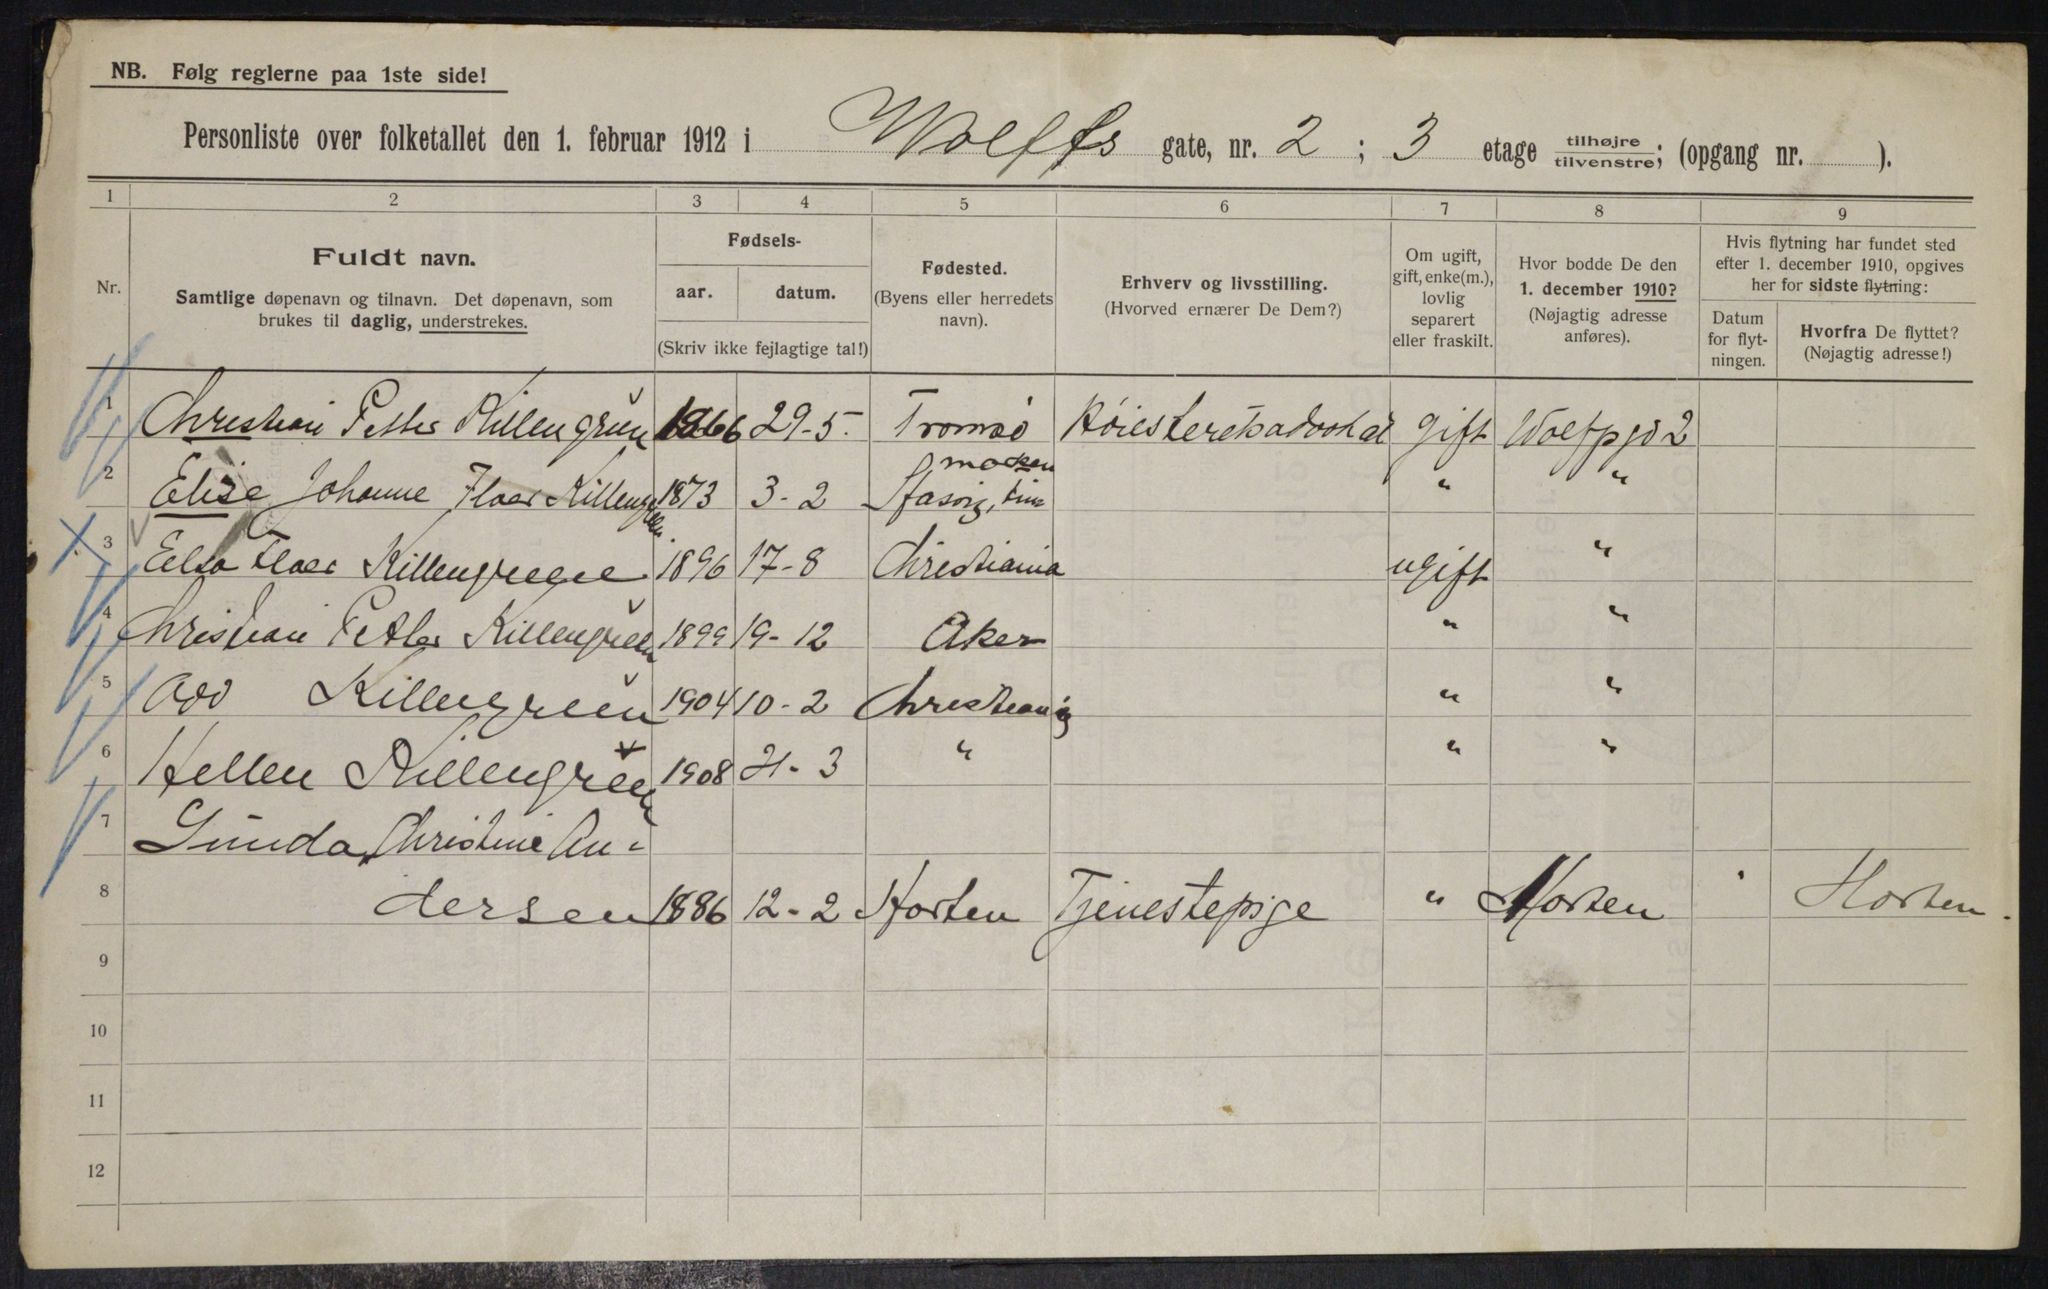 NB. Følg reglerne paa 1ste side!
Personliste over folketallet den 1. februar 1912 i Wolffs gate, nr. 2 ; 3 etage tilhøjre tilvenstre; (opgang nr. ).
1 2 3 4 5 6 7 8 9
Nr.
Fuldt navn.
Samtlige døpenavn og tilnavn. Det døpenavn, som
brukes til daglig, understrekes.
Fødsels-
aar. datum.
(Skriv ikke fejlagtige tal!)
Fødested.
(Byens eller herredets
navn).
Erhverv og livsstilling.
(Hvorved ernærer De Dem?)
Om ugift,
gift, enke(m.),
lovlig
separert
eller fraskilt.
Hvor bodde De den
1. december 1910?
(Nøjagtig adresse
anføres).
Hvis flytning har fundet sted
efter 1. december 1910, opgives
her for sidste flytning:
Datum
for flyt-
ningen.
Hvorfra De flyttet?
(Nøjagtig adresse!)
1 Christian Petter Killengreen 1866 29-5. Tromsø Høiesteretsadvokat gift 2
2 Elise Johanne Floer Killengreen 1873 3-2 " "
3 Elsa Floer Killengreen 1896 17-8 Christiania ugift "
4 Christian Petter Killengreen 1899 19-12 Aker " "
5 Odd Killengreen 1904 10-2 Christiania " "
6 Hellen Killengreen 1908 21-3 " " "
7 Gunda Christine An-
8 dersen 1886 12-2 Horten Tjenestepige " Horten Horten.
9
10
11
12